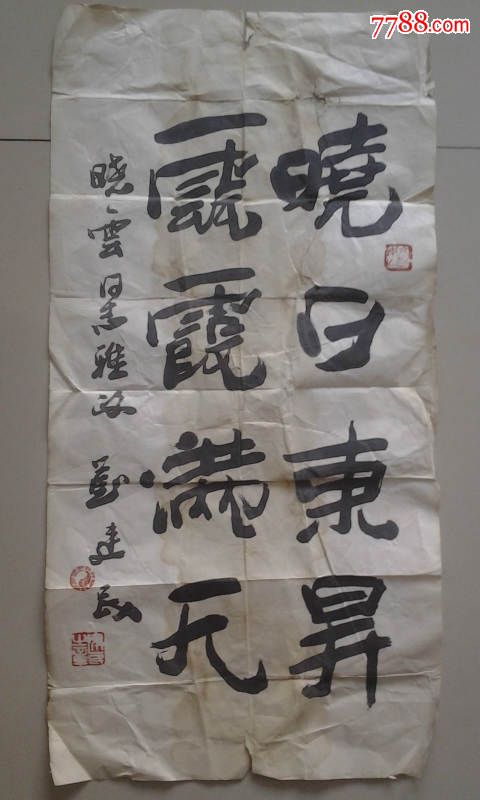 7788.com
曉日東昇
雲霞滿天
曉雲同志雅政 劉建民